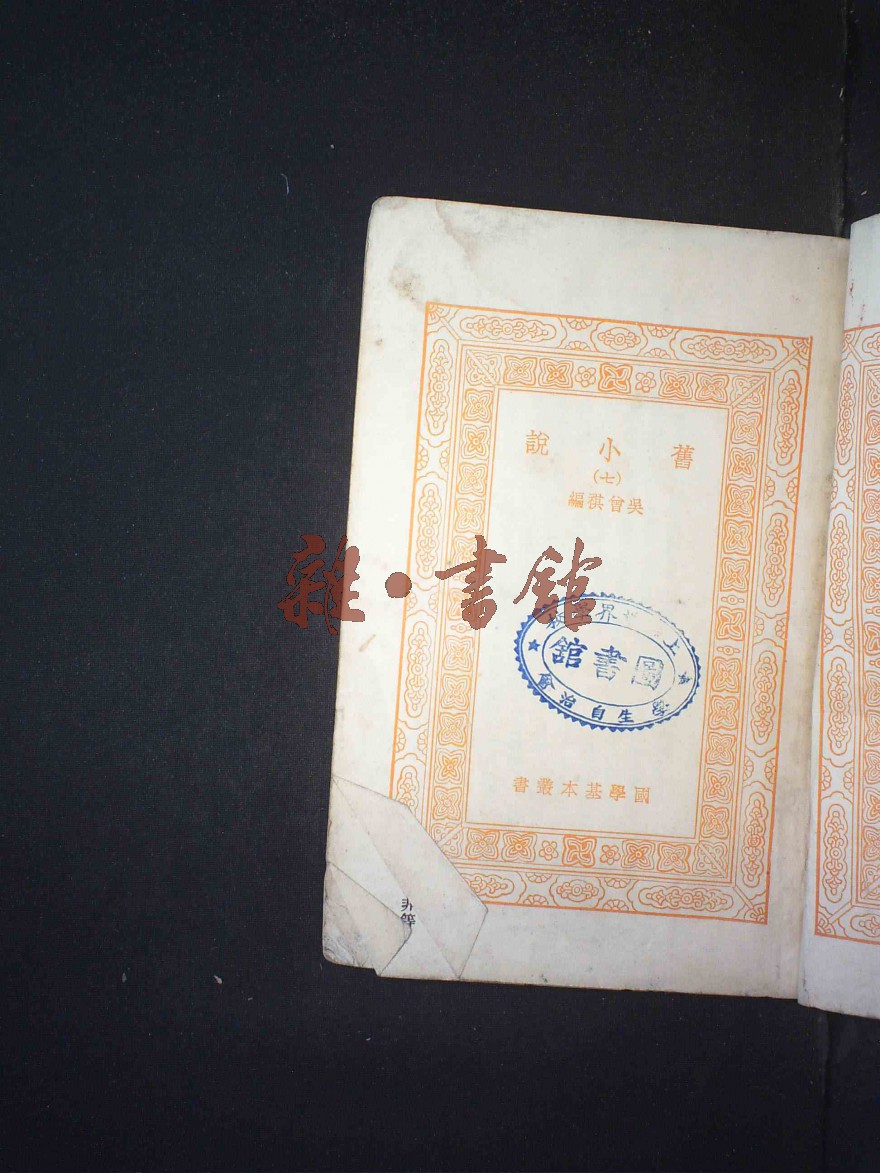 舊小說
(七)
吳曾祺編
雜·書館
上 界
圖書館
生自治會
國學基本叢書